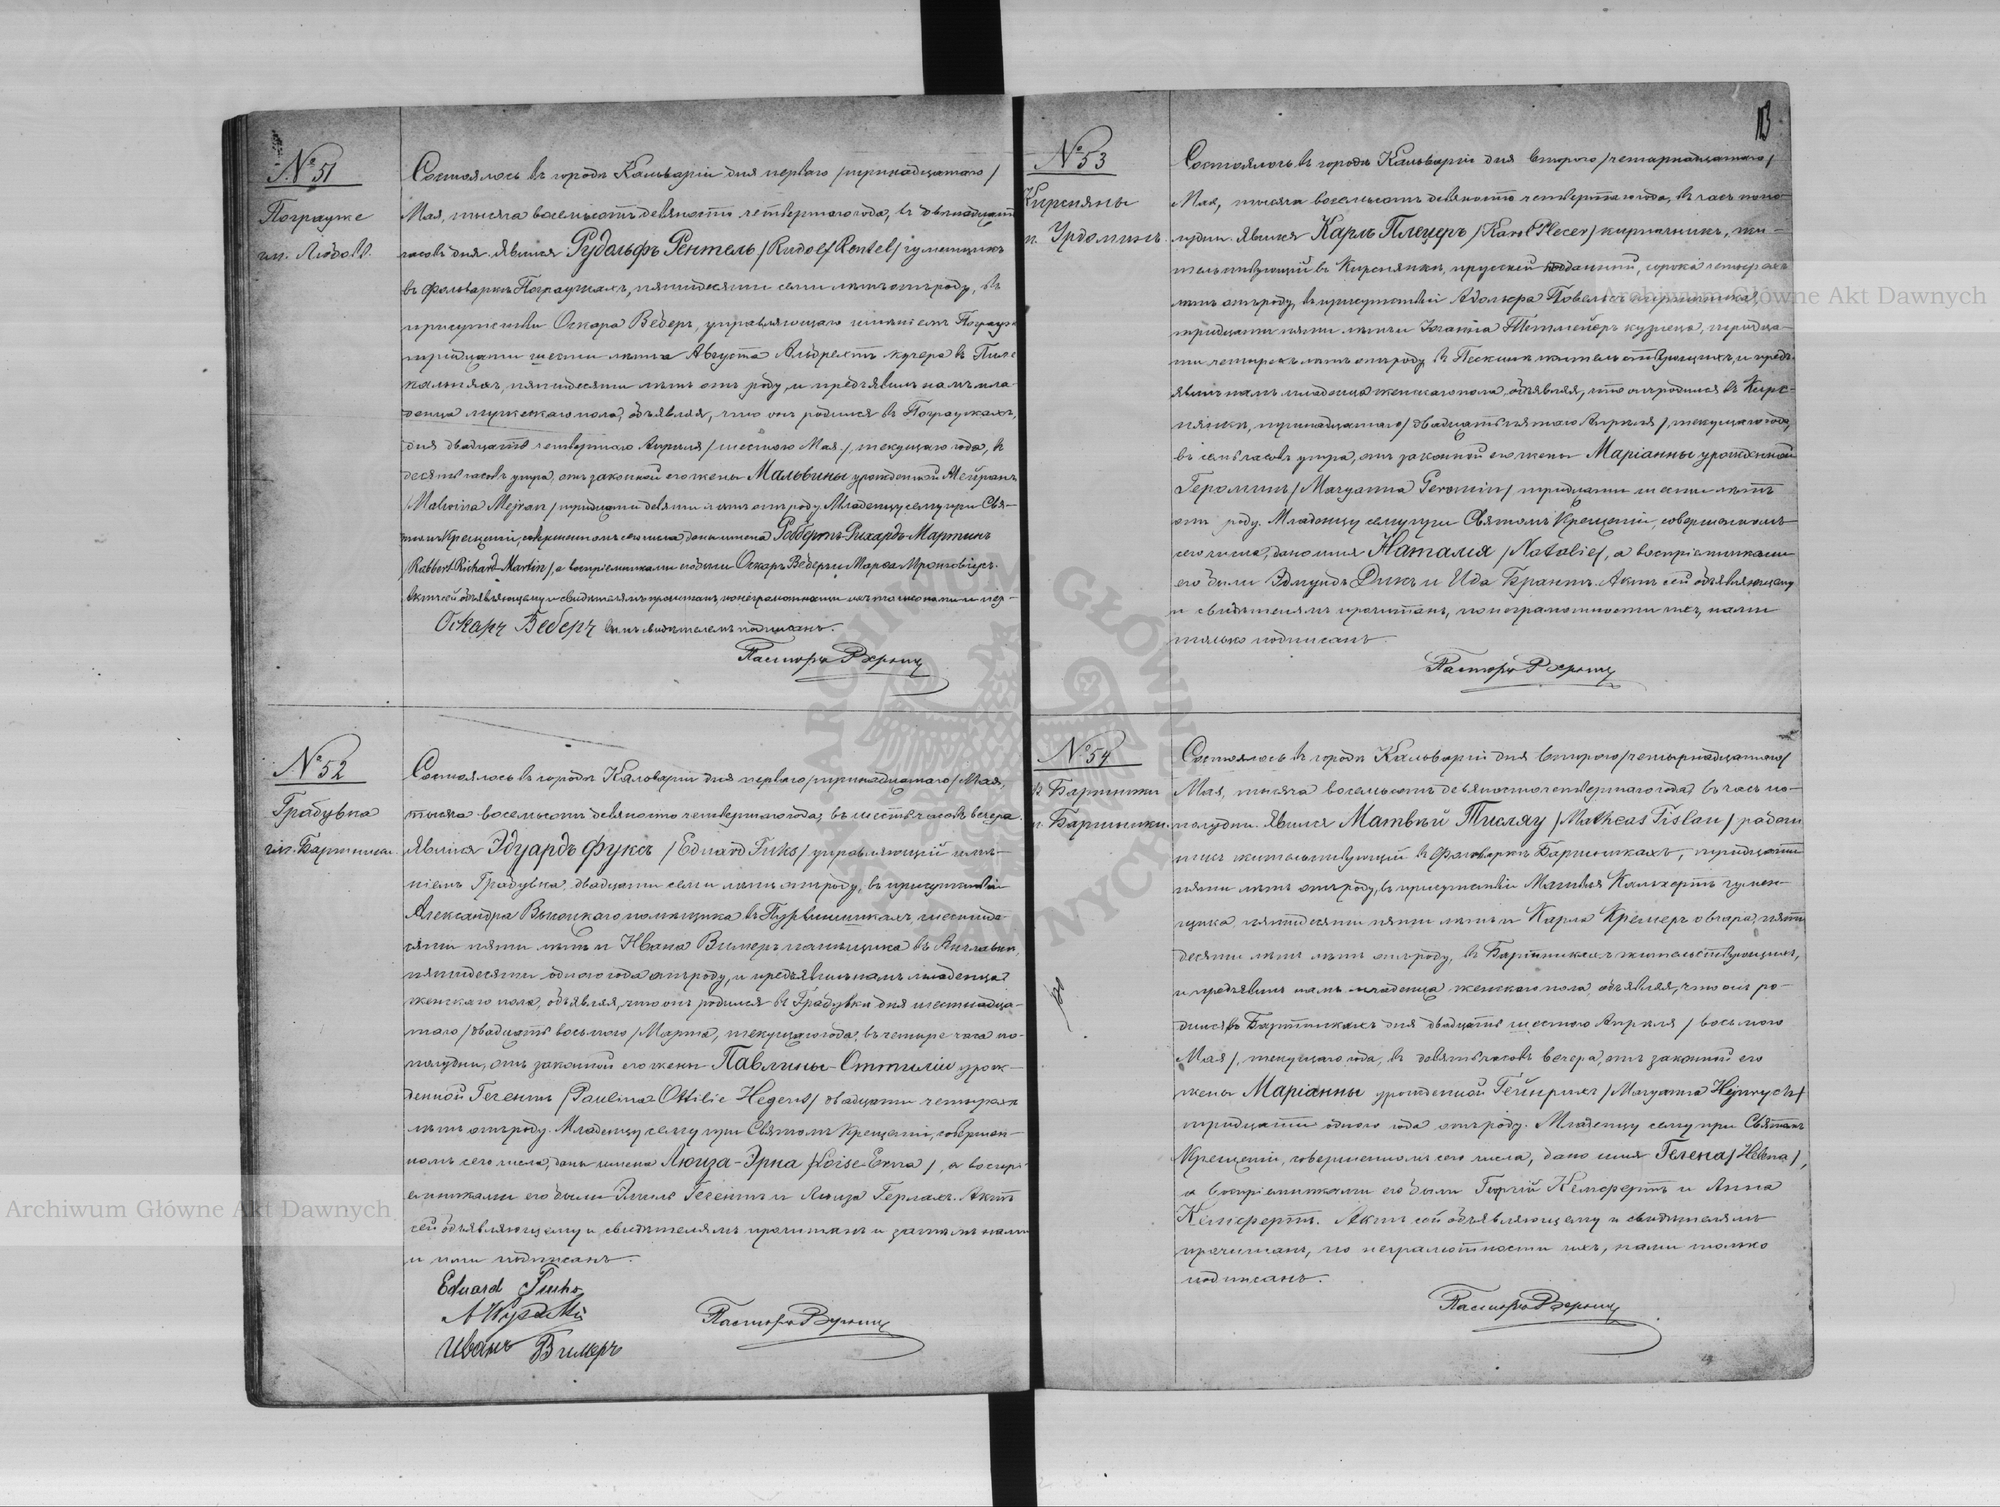 № 51
Пограуже
гм. Любово.
Состоялось въ городѣ Кальваріи дня перваго /тринадцатаго/
Мая, тысяча восемьсотъ девяносто четвертаго года, въ двѣнадцать
часовъ дня. Явился Рудольфъ Рентель /Rudolf Rentel/ гуменщикъ
въ фольваркѣ Пограужахъ, пятидесяти семи лѣтъ отъ роду, въ
присутствіи Оскара Веберъ, управляющаго имѣніемъ Пограуже
тридцати шести лѣтъ и Августа Альбрехтъ кучера въ
пятидесяти лѣтъ отъ роду, и предъявилъ намъ мла-
денца мужескаго пола, объявляя, что онъ родился въ Пограужахъ,
дня двадцать четвертаго Апрѣля /шестого Мая/, текущаго года, въ
десять часовъ утра, отъ законной его жены Мальвины урожденной Мейранъ
/Malwina Mejran/ тридцати девяти лѣтъ отъ роду. Младенцу сему при Свя-
томъ Крещеніи, совершенномъ сего числа, даны имена Робертъ-Рихардъ-Мартинъ
/Rabbert-Richard-Martin/, а воспріемниками его были Оскаръ Веберъ и Марѳа Мронговіусъ.
Актъ сей объявляющему и свидѣтелямъ прочитанъ, по неграмотности ихъ только нами и пер-
Оскаръ Веберъ вымъ свидѣтелемъ подписанъ.
Пасторъ
№ 52
Градувка
гм. Бартники.
Состоялось въ городѣ Кальваріи дня перваго /тринадцатаго/ Мая,
тысяча восемьсотъ девяносто четвертаго года, въ шесть часовъ вечера.
Явился Эдуардъ Фуксъ /Eduard Fuks/ управляющій имѣ-
ніемъ Градувка, двадцати семи лѣтъ отъ роду, въ присутствіи
Александра Высоцкаго помѣщика въ шестиде-
сяти пяти лѣтъ и Ивана Вимеръ помѣщика въ
пятидесяти одного года отъ роду, и предъявилъ намъ младенца
женскаго пола, объявляя, что онъ родился въ Градувкѣ дня шестнадца-
таго /двадцать восьмого/ Марта, текущаго года, въ четыре часа по-
полудни, отъ законной его жены Павлины-Оттиліи урож-
денной Гегентъ /Paulina-Ottilie Hegent/ двадцати четырехъ
лѣтъ отъ роду. Младенцу сему при Святомъ Крещеніи, совершен-
номъ сего числа, даны имена Люиза-Эрна /Loise-Erna/, а воспрі-
емниками его были Эмиль Гегентъ и Люиза Герлахъ. Актъ
сей объявляющему и свидѣтелямъ прочитанъ и затѣмъ нами
и ими подписанъ.
Eduard Fuchs
A Wysocki
Иванъ Вимеръ
Пасторъ
113
№ 53
Кирсняны
гм. Урдоминъ.
Состоялось въ городѣ Кальваріи дня второго /четырнадцатаго/
Мая, тысяча восемьсотъ девяносто четвертаго года, въ часъ попо-
лудни. Явился Карлъ Плецеръ /Karol Plecer/ кирпичникъ, жи-
тельствующій въ Кирснянкѣ, прусскій подданный, сорока четырехъ
лѣтъ отъ роду, въ присутствіи Адольфа кирпичника,
тридцати пяти лѣтъ и Іоганна кузнеца, тридца-
ти четырехъ лѣтъ отъ роду, въ жительствующихъ, и предъ-
явилъ намъ младенца женскаго пола объявляя, что онъ родился въ Кирс-
нянкѣ, тринадцатаго /двадцать пятаго Апрѣля/, текущаго года,
въ семь часовъ утра, отъ законной его жены Маріанны урожденной
Геромин /Maryanna Geromin/ тридцати шести лѣтъ
отъ роду. Младенцу сему при Святомъ Крещеніи, совершенномъ
сего числа, дано имя Наталія /Natalie/, а воспріемниками
его были Эдмундъ Дикъ и Ида Брантъ. Актъ сей объявляющему
и свидѣтелямъ прочитанъ, по неграмотности ихъ, нами
только подписанъ.
Пасторъ
№ 54
в. Бартники
гм. Бартники.
Состоялось въ городѣ Кальваріи дня второго /четырнадцатаго/
Мая, тысяча восемьсотъ девяносто четвертаго года, въ часъ по-
полудни. Явился Матвѣй Тислау /Matheas Tislau/ работ-
никъ жительствующій въ фольваркѣ Бартникахъ, тридцати
пяти лѣтъ отъ роду, въ присутствіи Матвѣя Кальхертъ гумен-
щика, пятидесяти пяти лѣтъ и Карла Кремеръ овчара, пяти-
десяти лѣтъ отъ роду, въ Бартникахъ жительствующихъ,
и предъявилъ намъ младенца женскаго пола, объявляя, что онъ ро-
дился въ Бартникахъ дня двадцать шестого Апрѣля /восьмого
Мая/, текущаго года, въ девять часовъ вечера, отъ законной его
жены Маріанны урожденной Гейнрихъ /Maryanna Hejnrych/
тридцати одного года отъ роду. Младенцу сему при Святомъ
Крещеніи, совершенномъ сего числа, дано имя Гелена /Helena/,
а воспріемниками его были Георгій Кемфертъ и Анна
Кемфертъ. Актъ сей объявляющему и свидѣтелямъ
прочитанъ, по неграмотности ихъ, нами только
подписанъ.
Пасторъ
Archiwum Główne Akt Dawnych
Archiwum Główne Akt Dawnych
ARCHIWUM GŁÓWNE AKT DAWNYCH